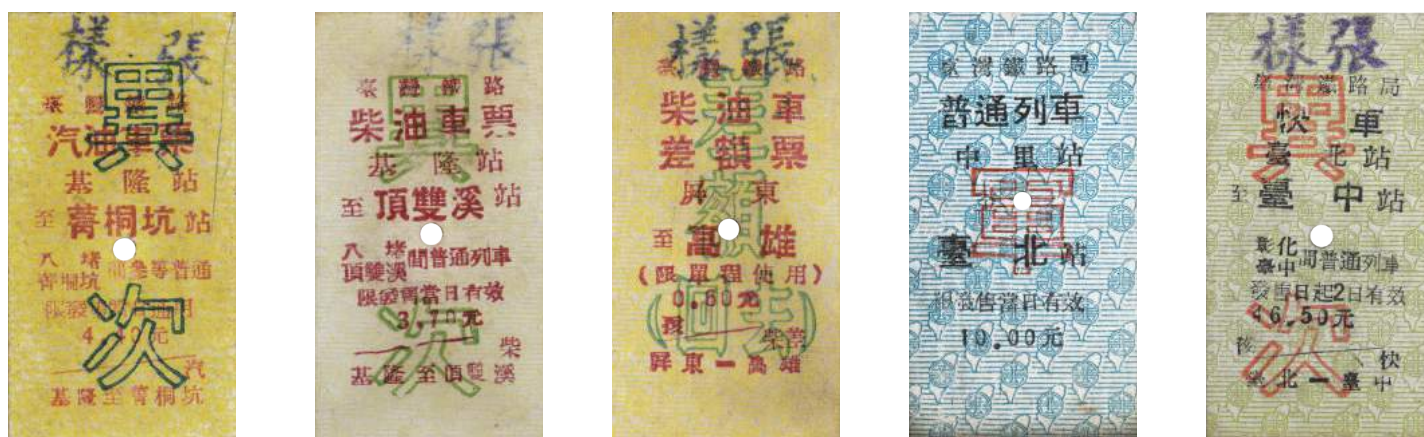 樣張
臺灣鐵路
汽油車票
基隆站
至菁桐坑站
八堵
菁桐坑
間參等普通
限發售當日有效
4.10元
汽
基隆至菁桐坑
異次
樣張
臺灣鐵路
柴油車票
基隆站
至頂雙溪站
八堵
頂雙溪
間普通列車
限發售當日有效
3.70元
柴
基隆至頂雙溪
異次
樣張
臺灣鐵路
柴油車
差額票
屏東
至高雄
(限單程使用)
0.60元
孩
柴差
屏東—高雄
差額
(回去)
臺灣鐵路局
普通列車
中里站
至
臺北站
限發售當日有效
10.00元
軍
樣張
臺灣鐵路局
快車
臺北站
至臺中站
彰化
臺中
間普通列車
發售日起2日有效
46.50元
孩
快
臺北—臺中
異次